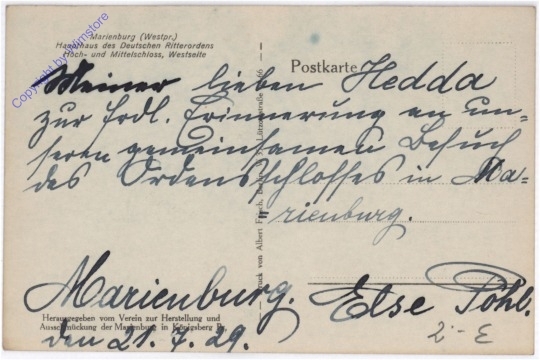 Marienburg (Westpr.)
Haupthaus des Deutschen Ritterordens
Hoch- und Mittelschloss, Westseite
Postkarte
Meiner lieben Hedda
zur frdl. Erinnerung an un=
seren gemeinsamen Besuch
des Ordensschlosses in Ma=
rienburg.
Marienburg. Else Pohl.
den 21.7.29.
Herausgegeben vom Verein zur Herstellung und
Ausschmückung der Marienburg in Königsberg Pr.
Druck von Albert Frisch, Berlin Lützowstraße 66
2.- E
Copyright by